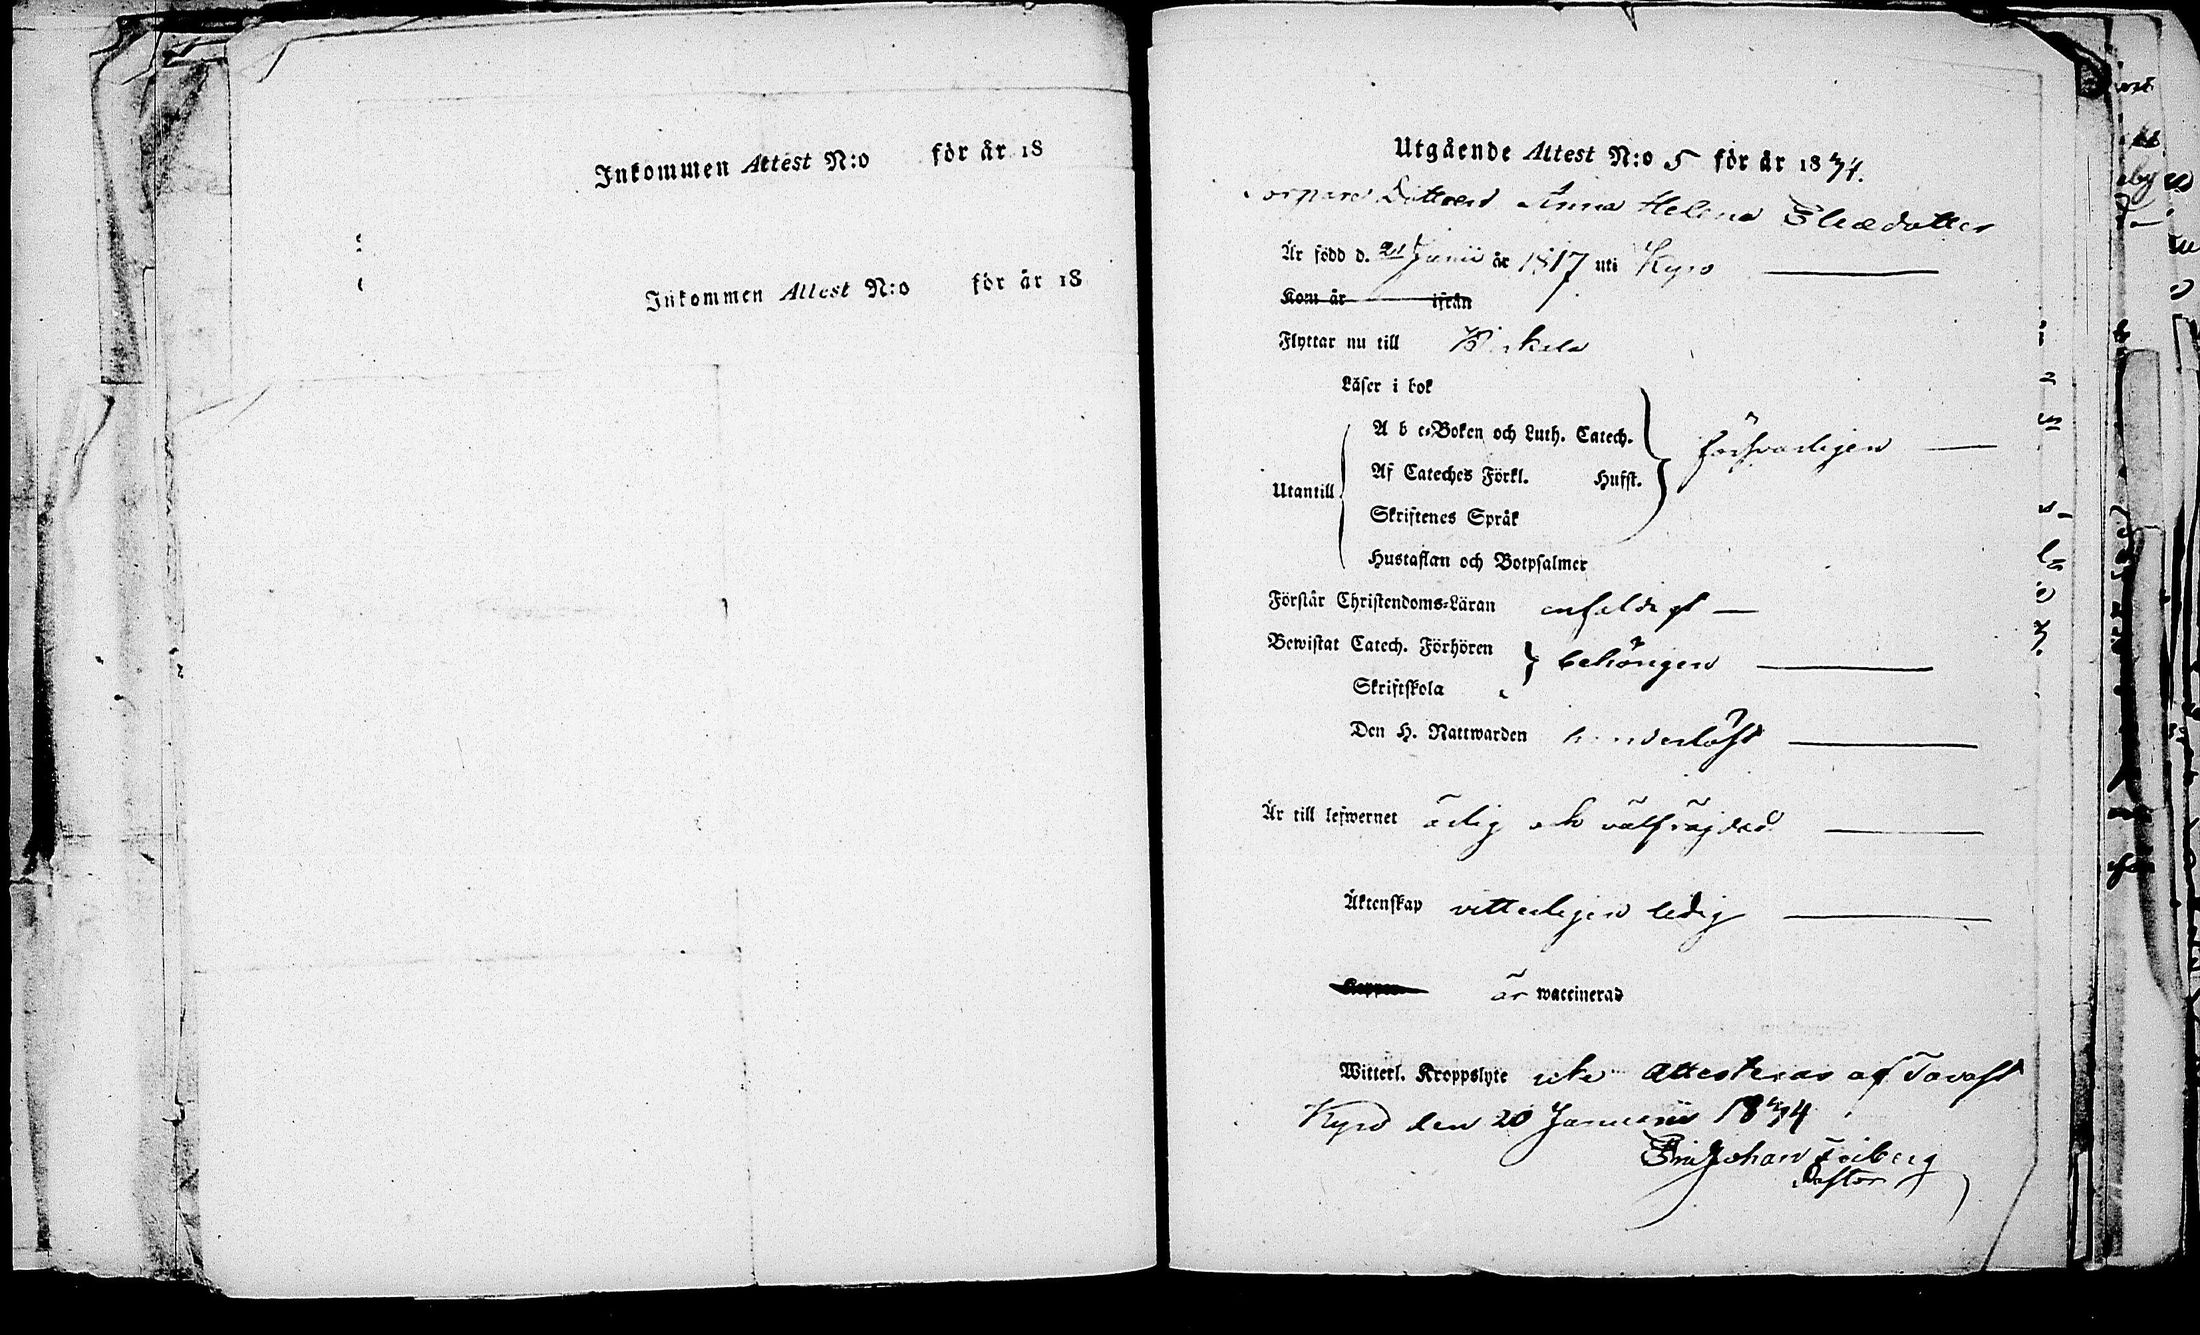 Inkommen Attest N:o för år 18
Inkommen Attest N:o för år 18
Utgående Attest N:o 5 för år 1874.
Torpare Dottren Anna Helena Eliædotter
Är född d. 21 Junii år 1817 uti Kyro
Kom år ifrån
Flyttar nu till Birkala
Läser i bok
A b c-Boken och Luth. Catech.
försvarligen
Af Cateches Förkl. Hufst.
Utantill
Skriftenes Språk
Hustaflan och Botpsalmer
Förstår Christendoms-Läran enfaldigt
Bewistat Catech. Förhören
behörigen
Skriftskola
Den H. Nattwarden hinderlöst
Är till lefwernet ärlig och välfrägdad
Äktenskap vitterligen ledig
Koppor är waccinerad
Witterl. Kroppslyte icke Attesteras af Tavast
Kyro den 20 Januarii 1874
Johan Friberg
Pastor